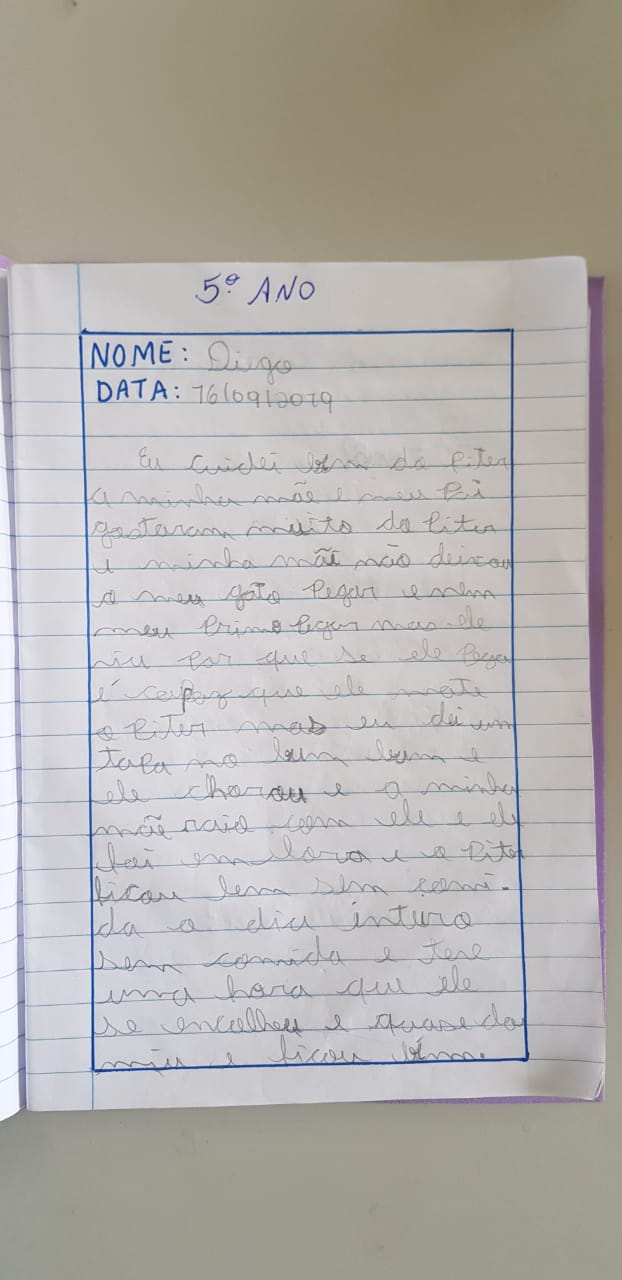 5º ANO
NOME: Diego
DATA: 16/09/2019
Eu cuidei bem do Piter
a minha mãe e meu Pai
gostaram muito do Piter
e minha mãe não deixou
o meu gato Pegar e nem
meu Primo Pegar mas ele
viu Por que se ele Pega
é capaz que ele mate
o Piter mas eu dei um
tapa no bum bum e
ele chorou e a minha
mãe raio com ele e ele
foi embora e o Piter
ficou bem sem comi-
da o dia inturo
sem comida e teve
uma hora que ele
se encolheu e quase do
miu e ficou bem.